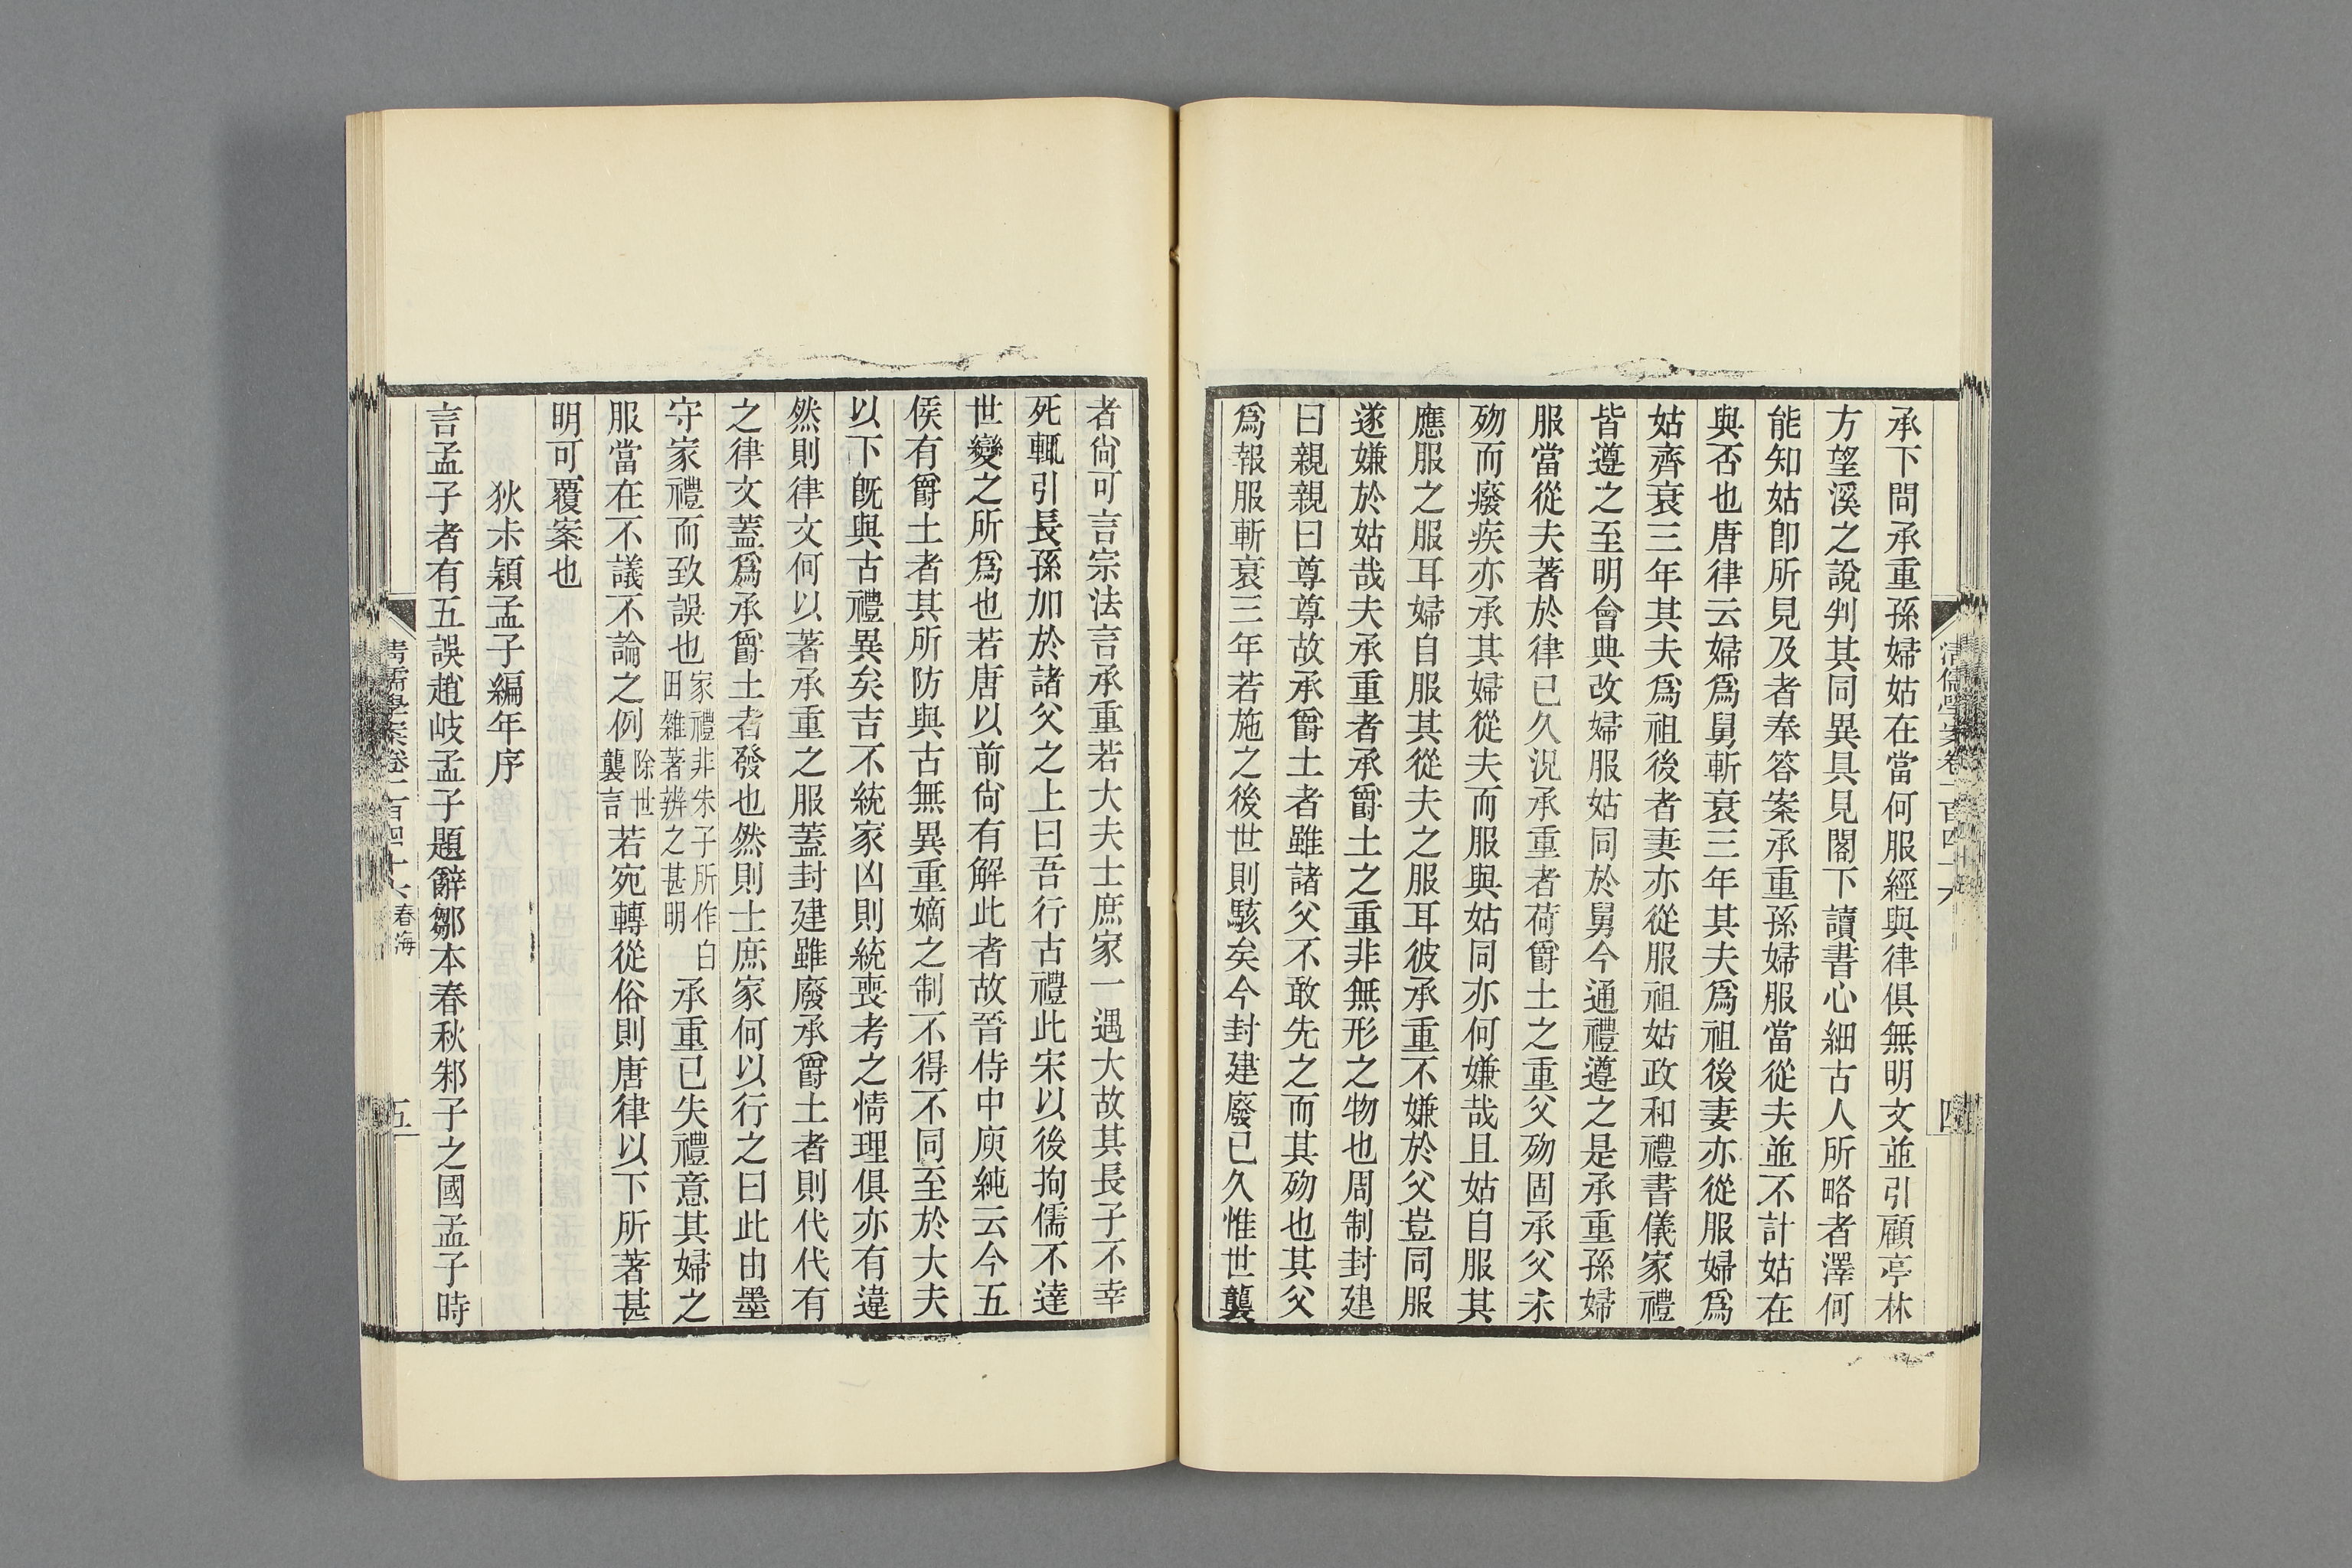 承下問承重孫婦姑在當何服經與律俱無明文並引顧亭林
方望溪之說判其同異具見閣下讀書心細古人所略者澤何
能知姑卽所見及者奉答案承重孫婦服當從夫並不計姑在
與否也唐律云婦爲舅斬衰三年其夫爲祖後妻亦從服婦爲
姑齊衰三年其夫爲祖後者妻亦從服祖姑政和禮書儀家禮
皆遵之至明會典改婦服姑同於舅今通禮遵之是承重孫婦
服當從夫著於律已久況承重者荷爵土之重父歾固承父未
歾而癈疾亦承其婦從夫而服與姑同亦何嫌哉且姑自服其
應服之服耳婦自服其從夫之服耳彼承重不嫌於父豈同服
遂嫌於姑哉夫承重者承爵土之重非無形之物也周制封建
曰親親曰尊尊故承爵土者雖諸父不敢先之而其歾也其父
爲報服斬衰三年若施之後世則駭矣今封建廢已久惟世襲
者尙可言宗法言承重若大夫士庶家一遇大故其長子不幸
死輒引長孫加於諸父之上曰吾行古禮此宋以後拘儒不達
世變之所爲也若唐以前尙有解此者故晉侍中庾純云今五
侯有爵土者其所防與古無異重嫡之制不得不同至於大夫
以下旣與古禮異矣吉不統家凶則統喪考之情理俱亦有違
然則律文何以著承重之服蓋封建雖廢承爵土者則代代有
之律文蓋爲承爵土者發也然則士庶家何以行之曰此由墨
守家禮而致誤也家禮非朱子所作白田雜著辨之甚明承重已失禮意其婦之
服當在不議不論之例除世襲言若宛轉從俗則唐律以下所著甚
明可覆案也
狄未穎孟子編年序
言孟子者有五誤趙岐孟子題辭鄒本春秋邾子之國孟子時
清儒學案卷一百四十六
四
清儒學案卷一百四十六 春海
五